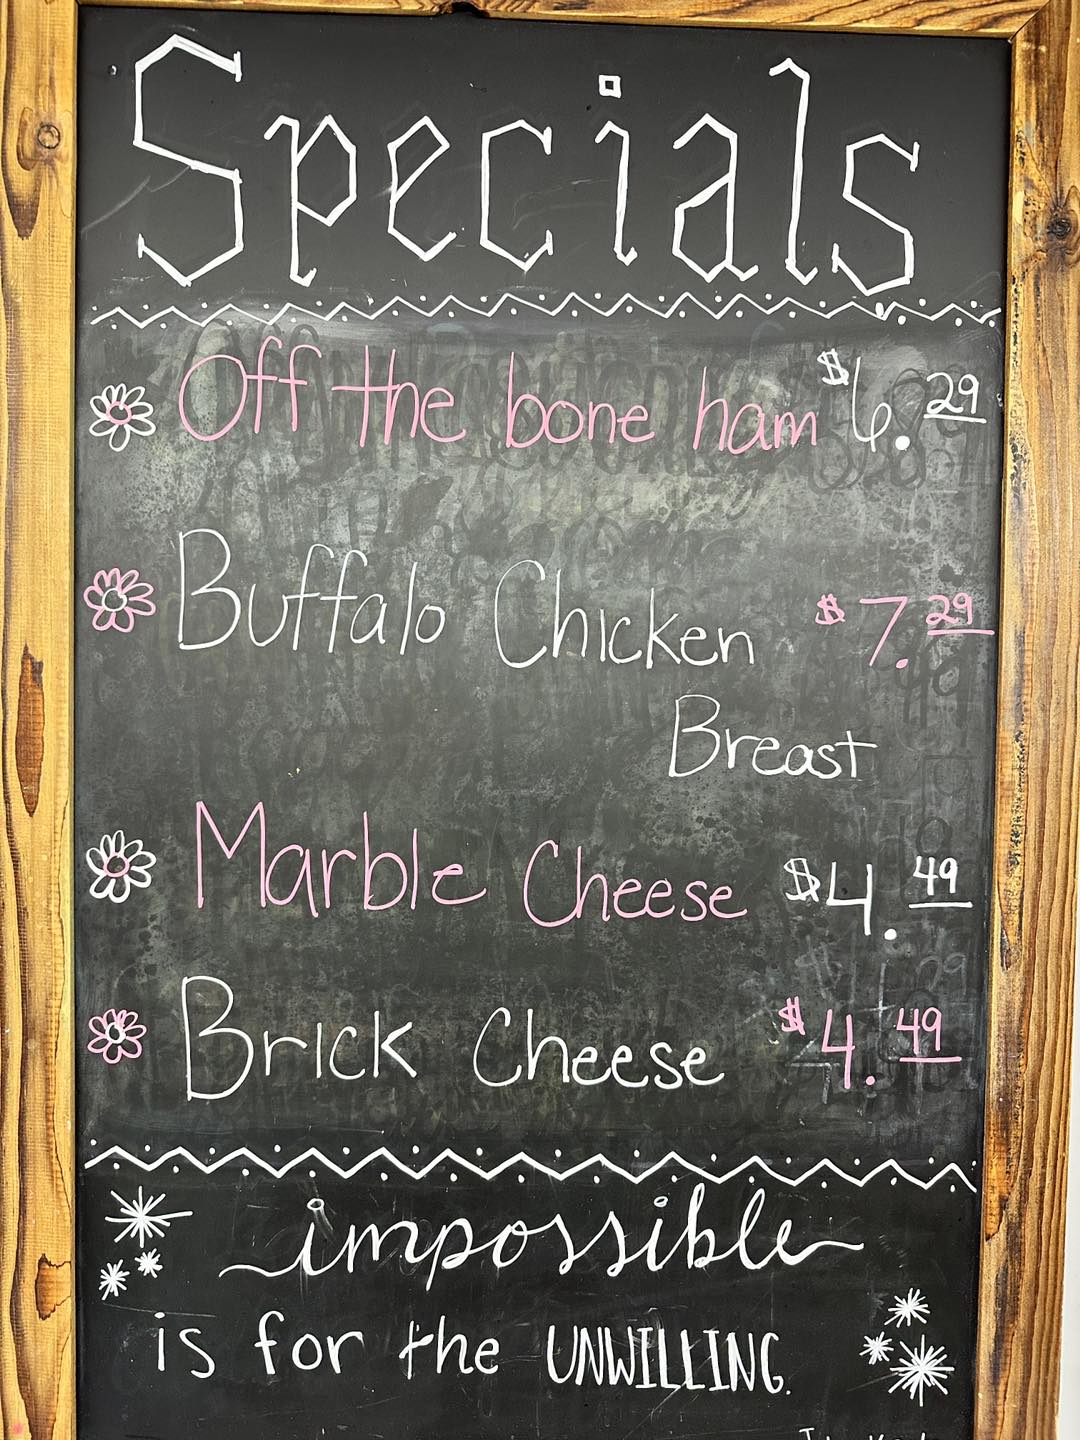 Specials
Off the bone ham $6.29
Buffalo Chicken $7.29
Breast
Marble Cheese $4.49
Brick Cheese $4.49
impossible
is for the UNWILLING.